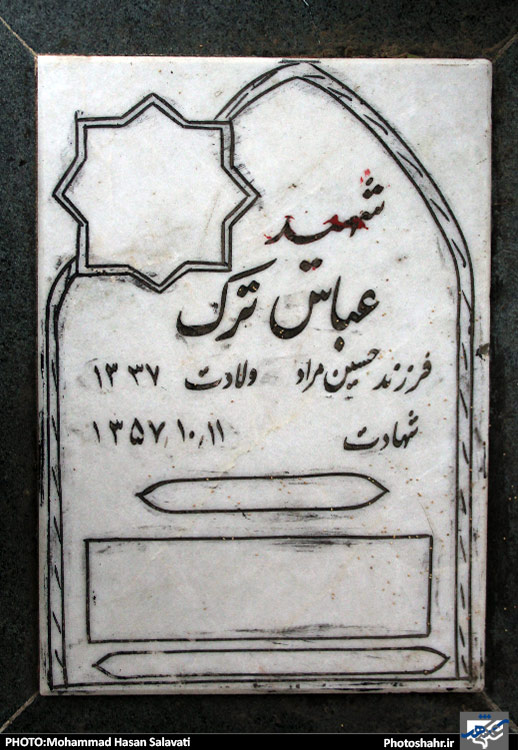 شهید
عباس ترک
فرزند حسین مراد ولادت ۱۳۳۷
شهادت ۱۳۵۷/۱۰/۱۱
PHOTO:Mohammad Hasan Salavati
Photoshahr.ir